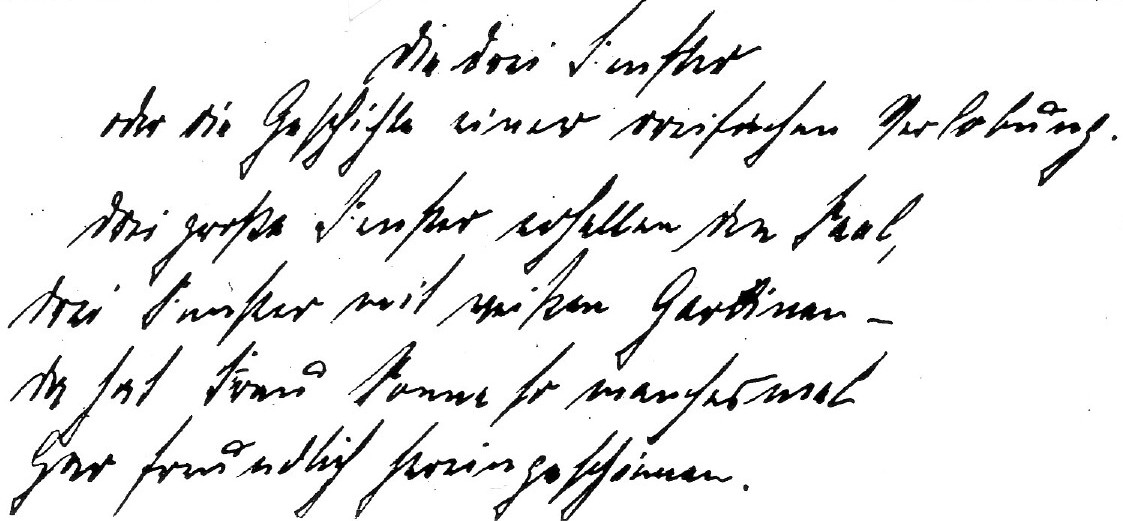 Die drei Fenster
oder die Geschichte einer dreifachen Verlobung.
Drei große Fenster erhellen den Saal,
drei Fenster mit weißen Gardinen –
da hat Frau Sonne so manchesmal
Gar freundlich hereingeschienen.